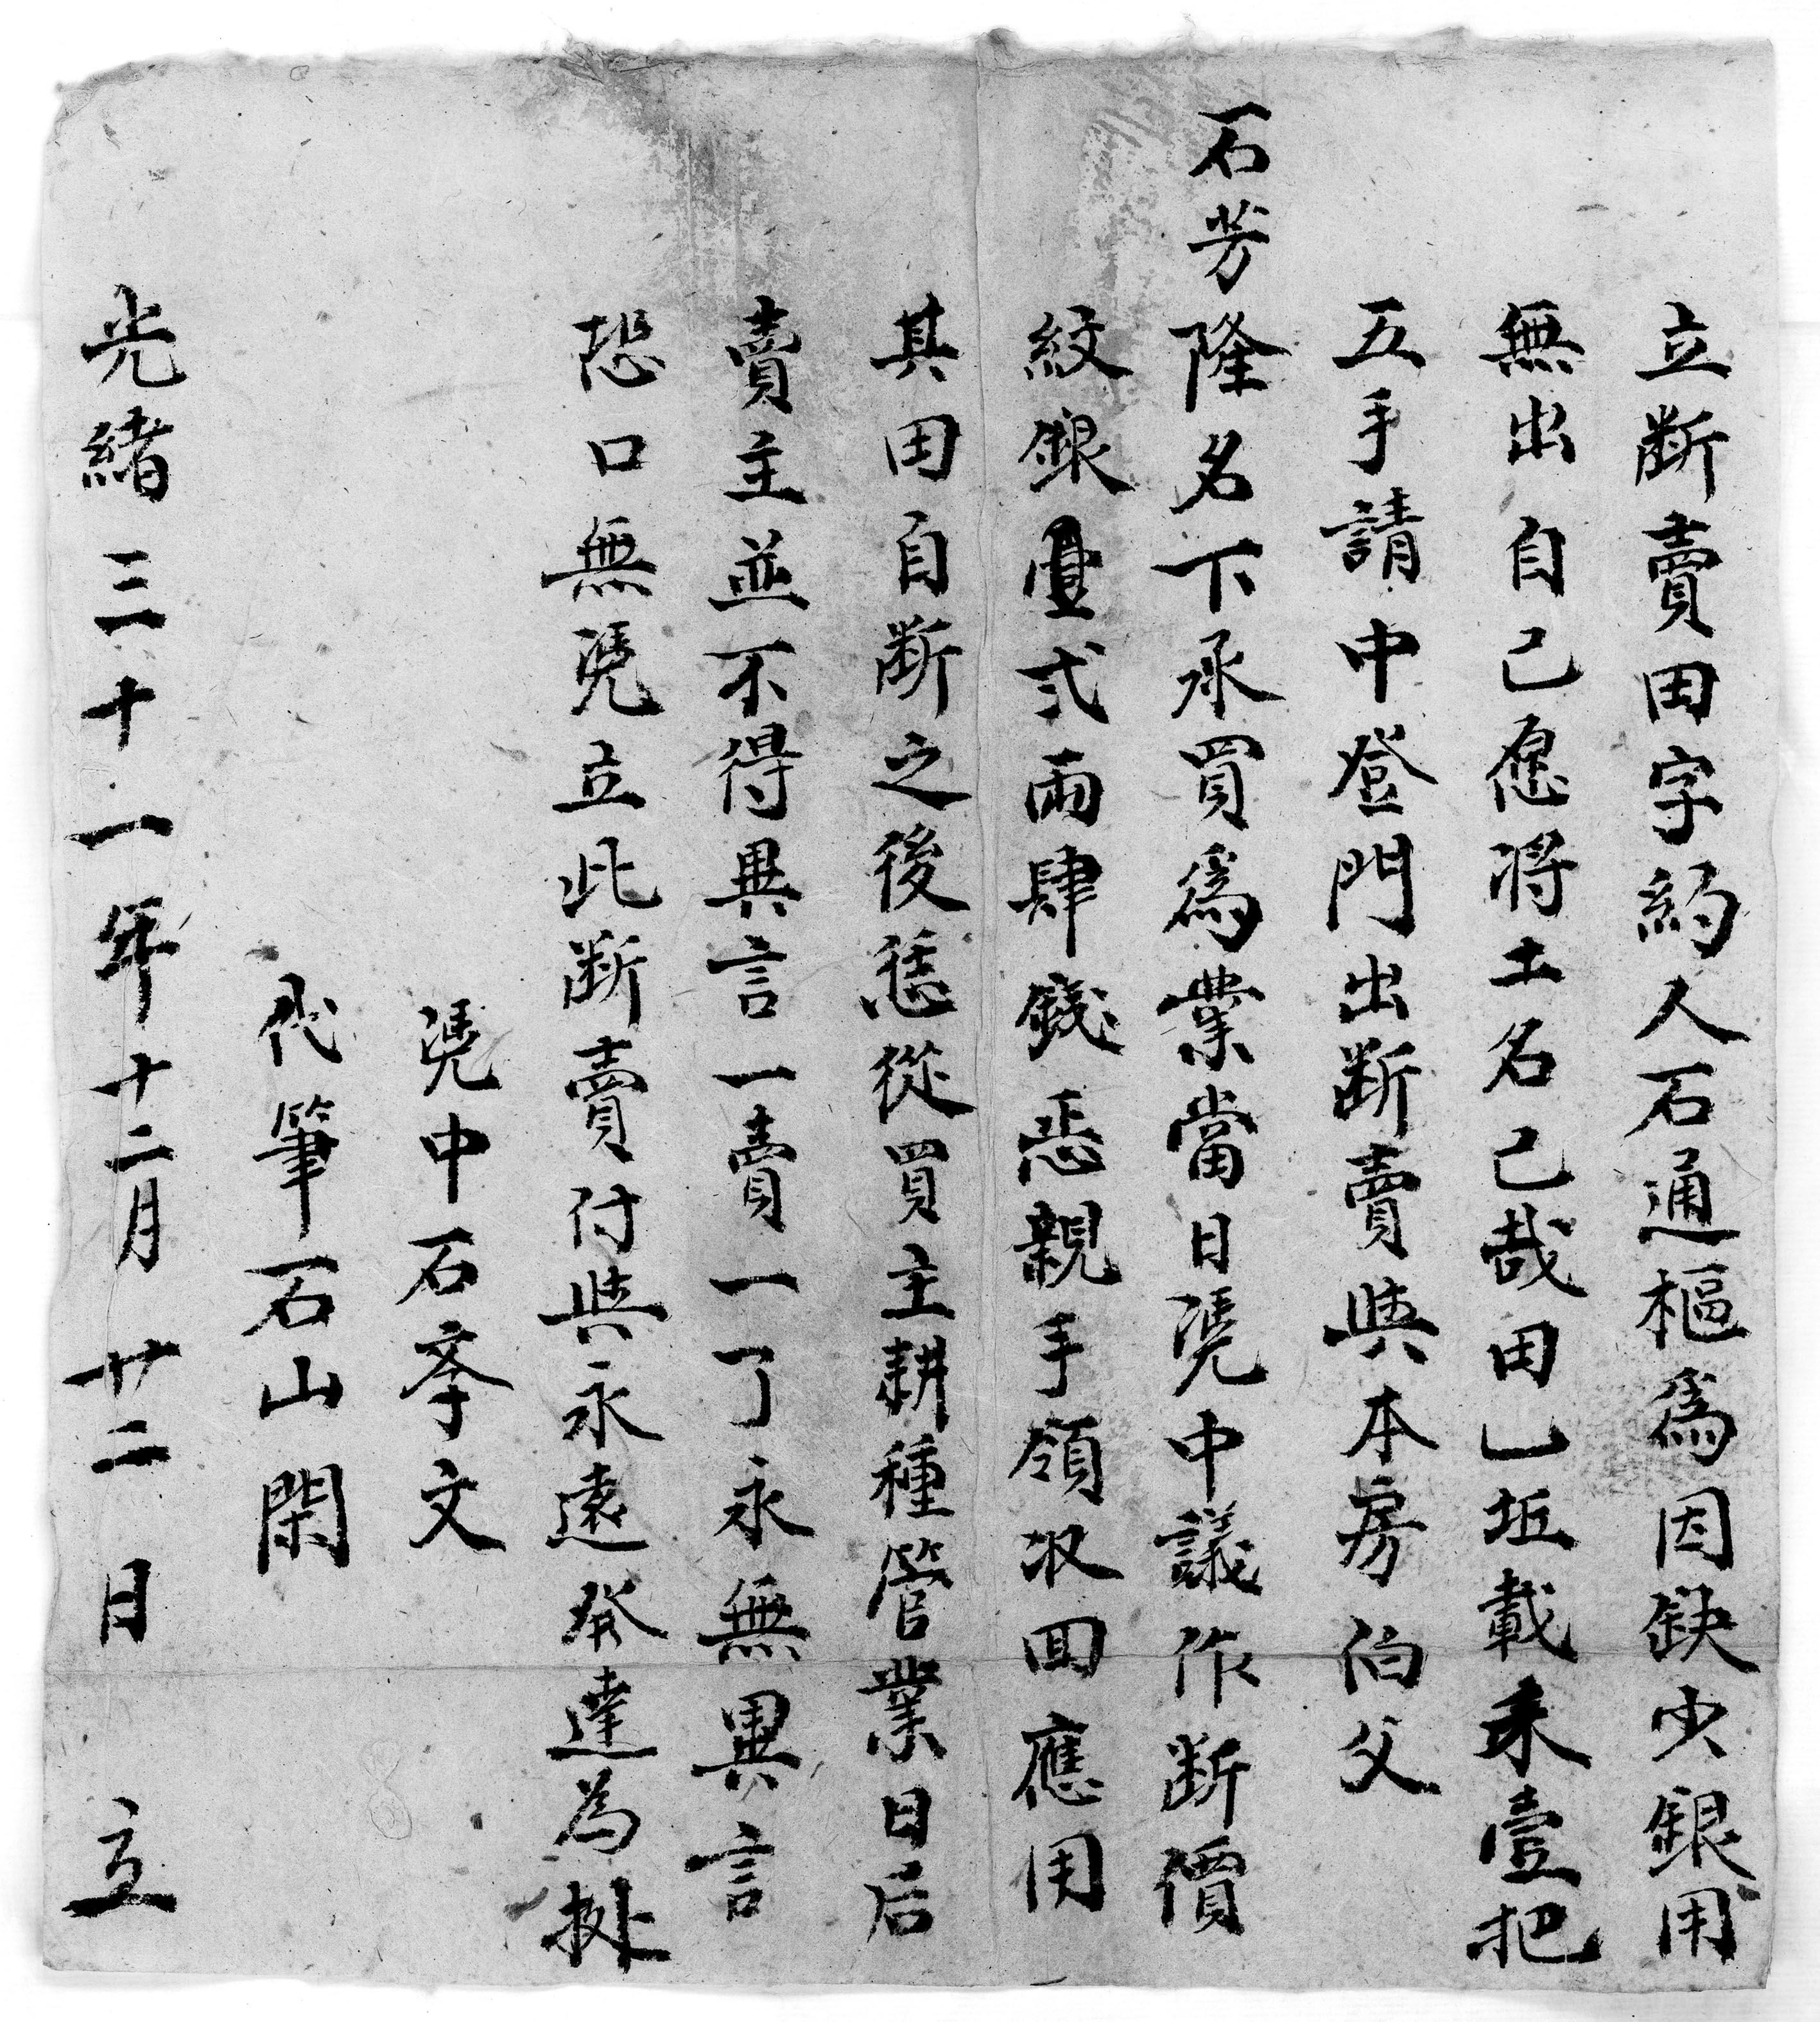 立断賣田字約人石通樞為因缺少銀用
無出自己愿将土名己哉田乚坵載禾壹把
五手請中登門出断賣與本房伯父
石芳隆名下承買為業當日凴中議作断價
紋銀壹弍兩肆錢恁親手領収回應用
其田自断之後恁從買主耕種管業日后
賣主並不得異言一賣一了永無異言
恐口無凴立此断賣付與永遠發達為據
凴中石孝文
代筆石山閑
光緒三十一年十二月廿二日立